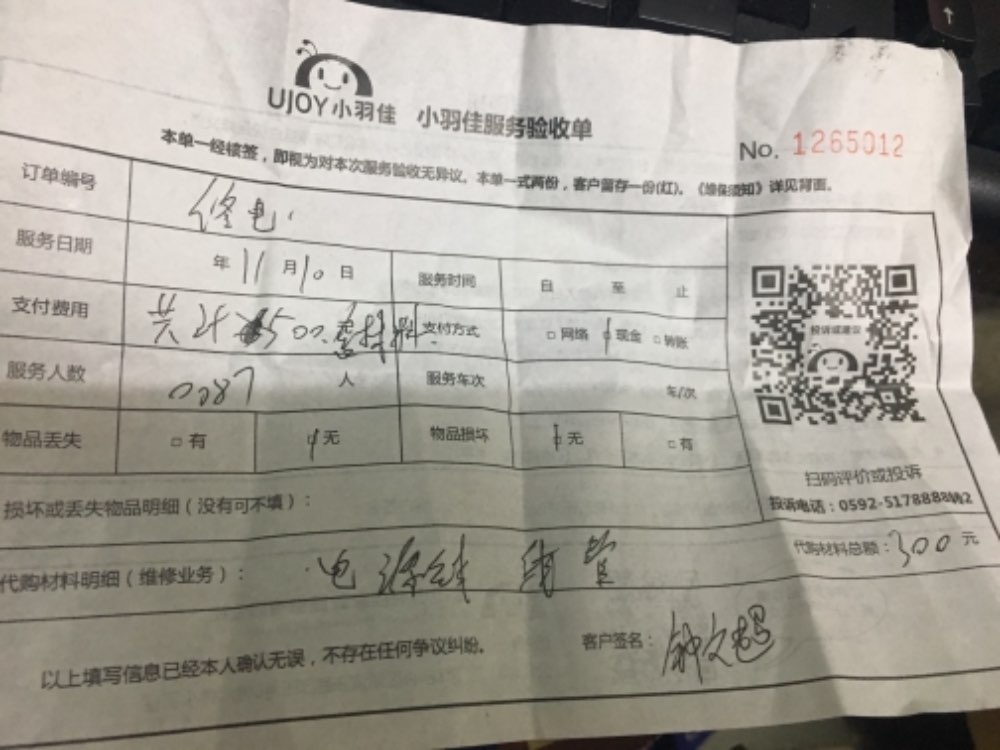 UJOY小羽佳 小羽佳服务验收单
No. 1265012
本单一经接签，即视为对本次服务验收无异议。本单一式两份，客户留存一份(红)。《维保须知》详见背面。
订单编号 修电
服务日期 年 11 月 10 日 服务时间 自 至 止
支付费用 共计 500 含材料 支付方式 □网络 □现金 □转账
服务人数 0087 人 服务车次 车/次
物品丢失 □有 □无 物品损坏 □无 □有
投诉或建议
扫码评价或投诉
投诉电话：0592-5178888转2
损坏或丢失物品明细（没有可不填）：
代购材料明细（维修业务）： 电源线 线管 代购材料总额：300元
以上填写信息已经本人确认无误，不存在任何争议纠纷。 客户签名：钟文超